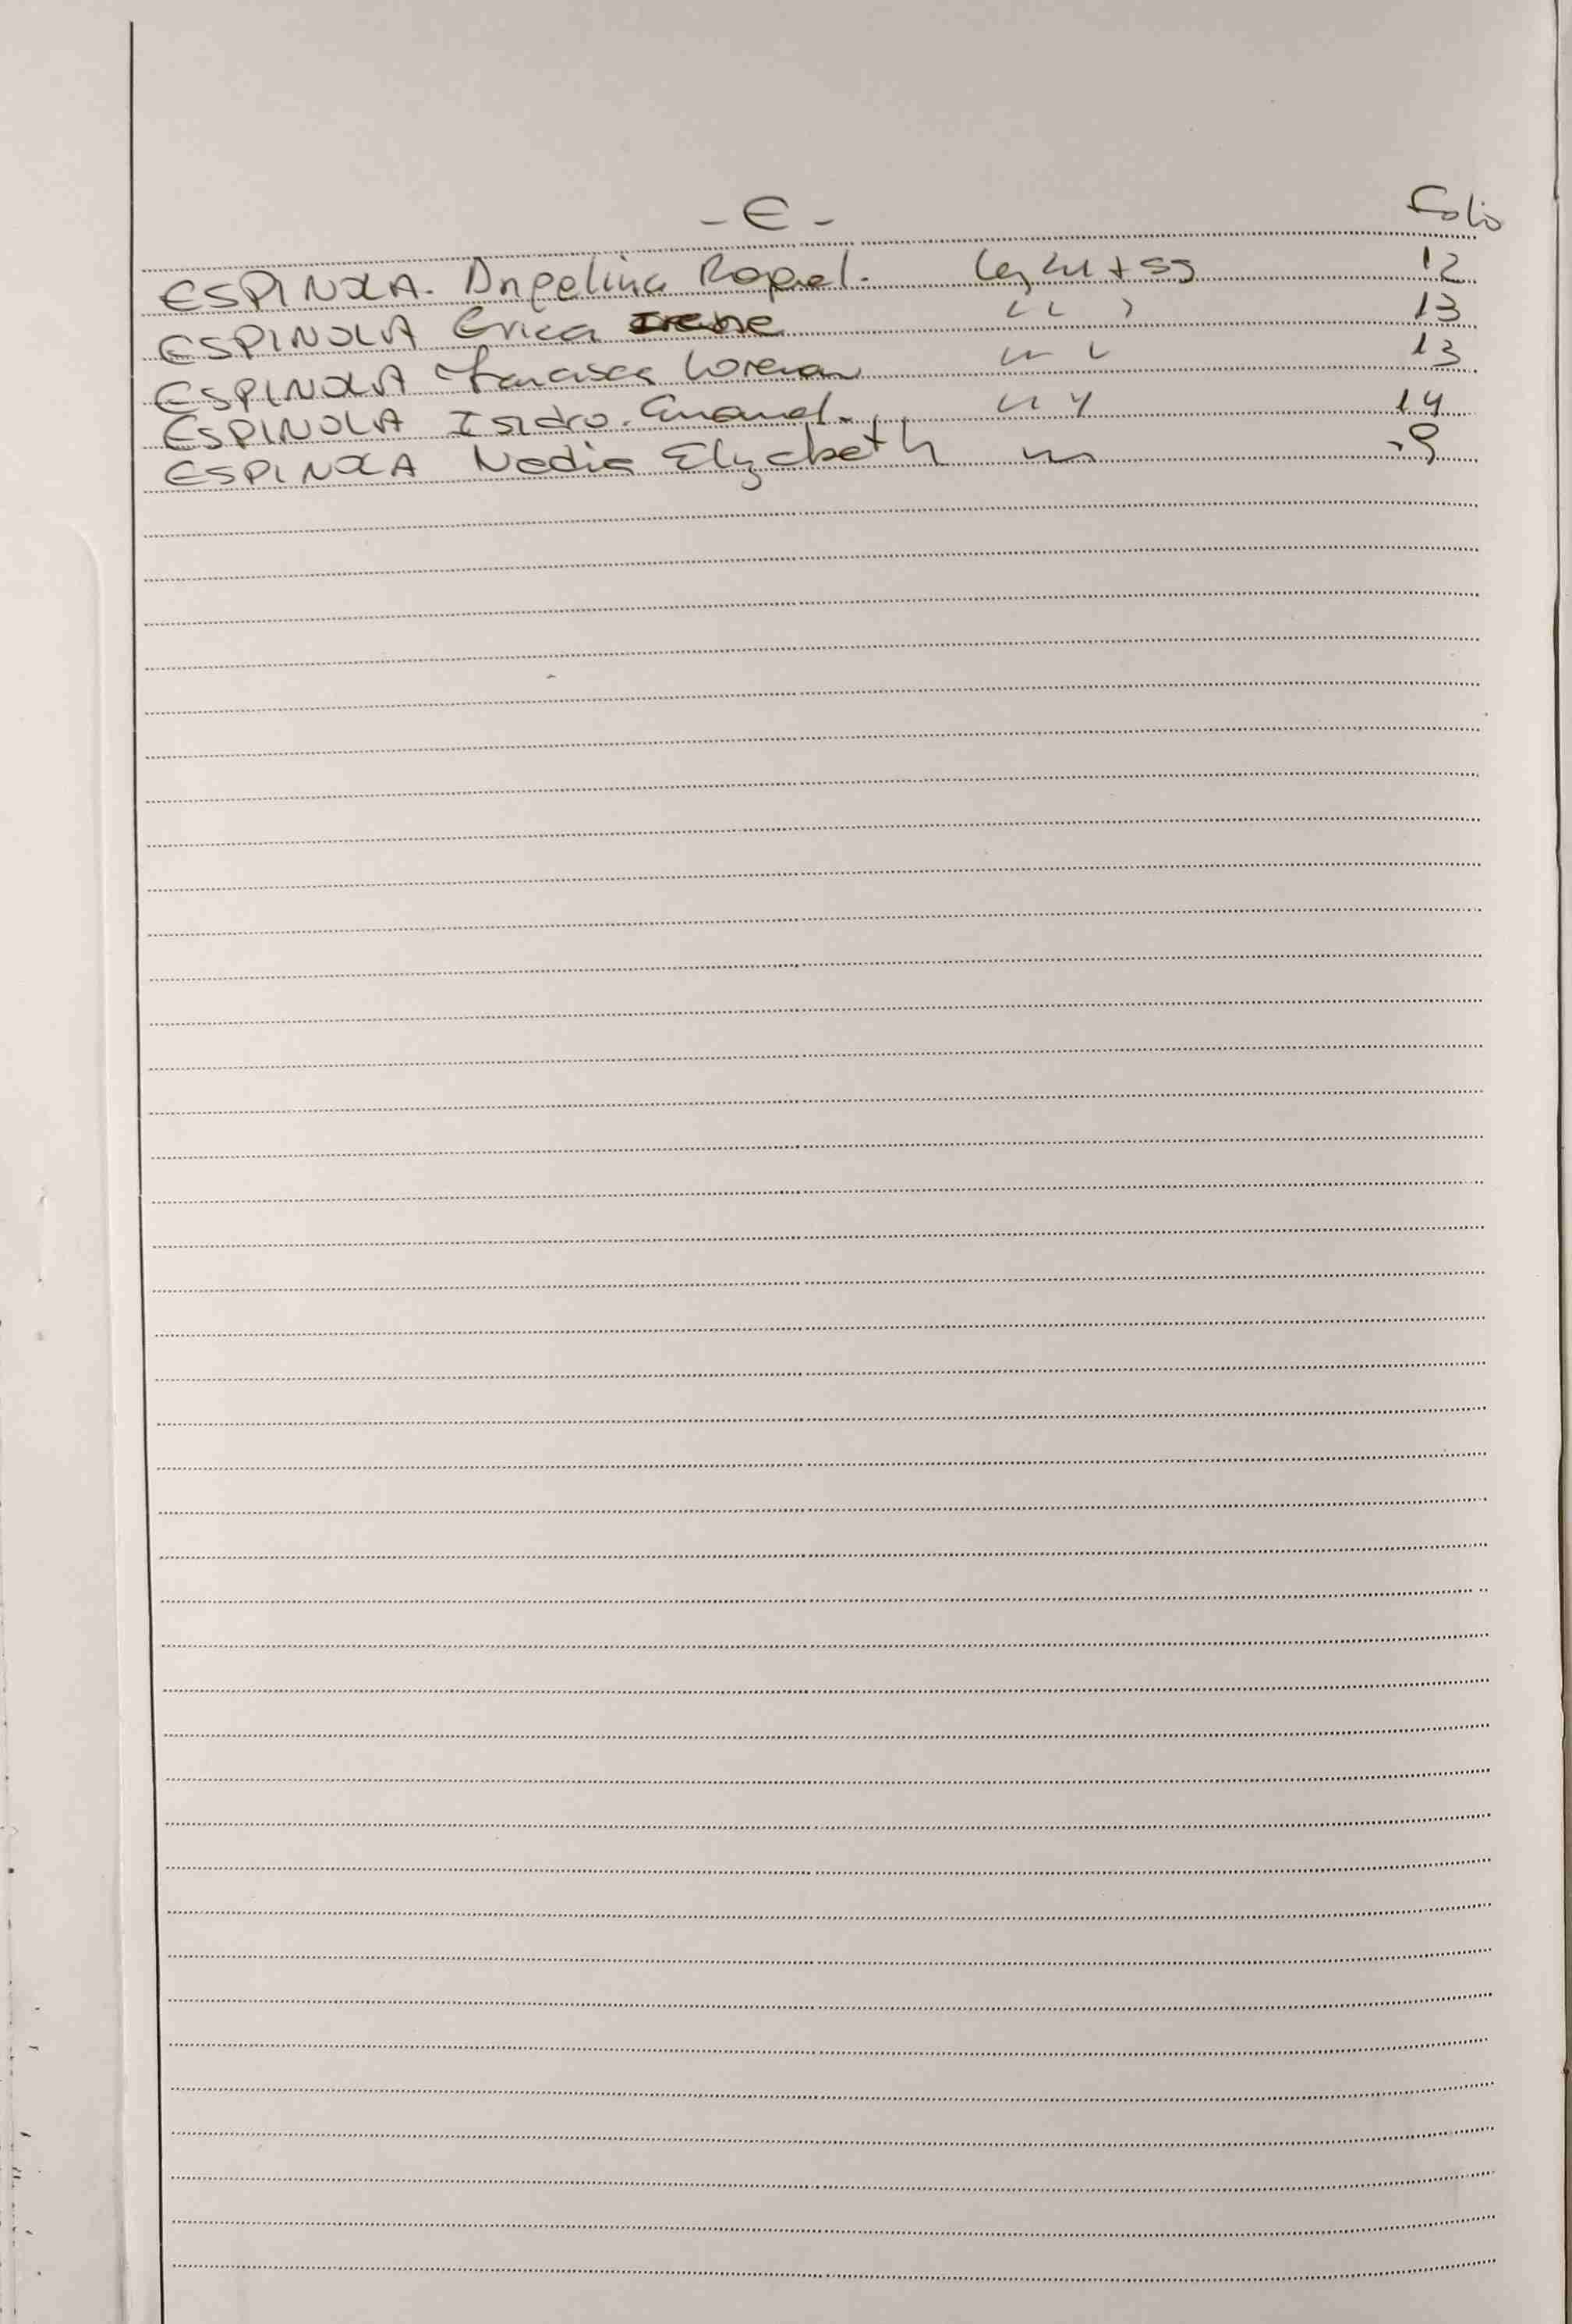 - E - Folio
ESPINOLA. Angelina Raquel. 12
ESPINOLA Erica Irene " " " 13
ESPINOLA Francisca Lorena " " 13
ESPINOLA Isidro. Emanuel. " " 14
ESPINOLA Nadia Elizabeth "